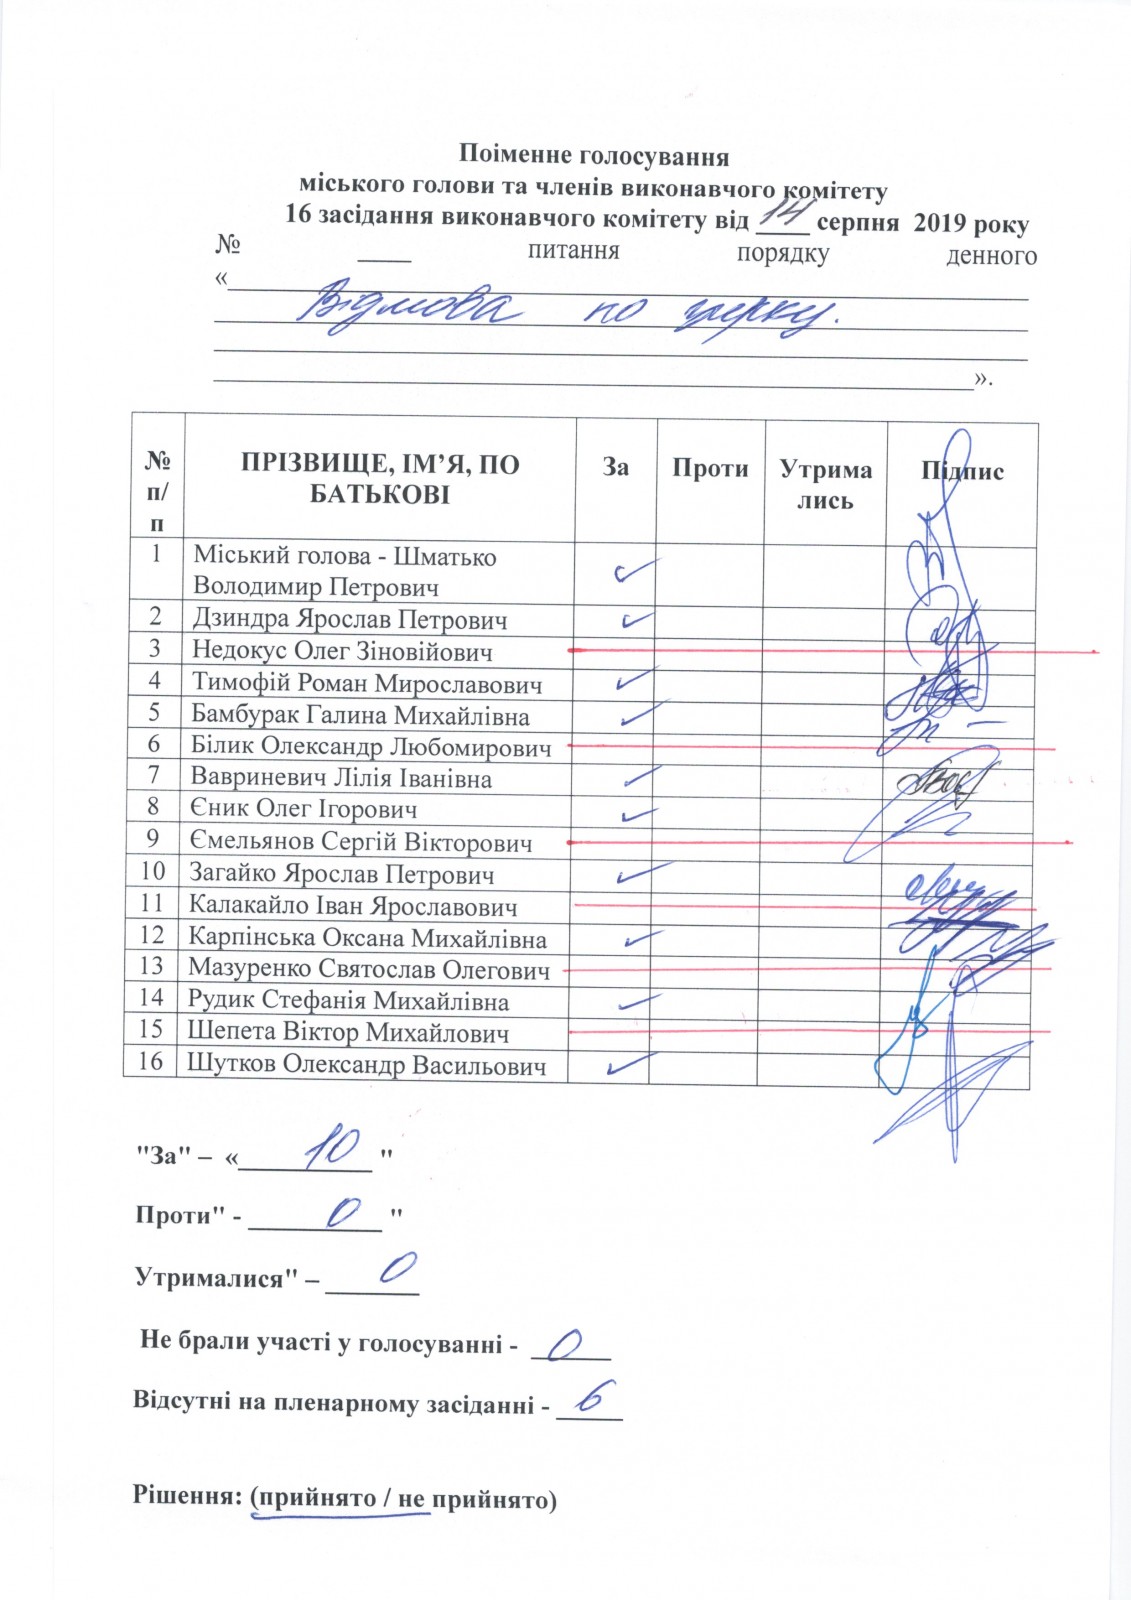 Поіменне голосування
міського голови та членів виконавчого комітету
16 засідання виконавчого комітету від 14 серпня 2019 року
№ ____ питання порядку денного
«
Відмова по
».
№ п/п ПРІЗВИЩЕ, ІМ’Я, ПО БАТЬКОВІ За Проти Утрима лись Підпис
1 Міський голова - Шматько
Володимир Петрович
2 Дзиндра Ярослав Петрович
3 Недокус Олег Зіновійович
4 Тимофій Роман Мирославович
5 Бамбурак Галина Михайлівна
6 Білик Олександр Любомирович
7 Вавриневич Лілія Іванівна
8 Єник Олег Ігорович
9 Ємельянов Сергій Вікторович
10 Загайко Ярослав Петрович
11 Калакайло Іван Ярославович
12 Карпінська Оксана Михайлівна
13 Мазуренко Святослав Олегович
14 Рудик Стефанія Михайлівна
15 Шепета Віктор Михайлович
16 Шутков Олександр Васильович
"За" – « 10 "
Проти" - 0 "
Утрималися" – 0
Не брали участі у голосуванні - 0
Відсутні на пленарному засіданні - 6
Рішення: (прийнято / не прийнято)